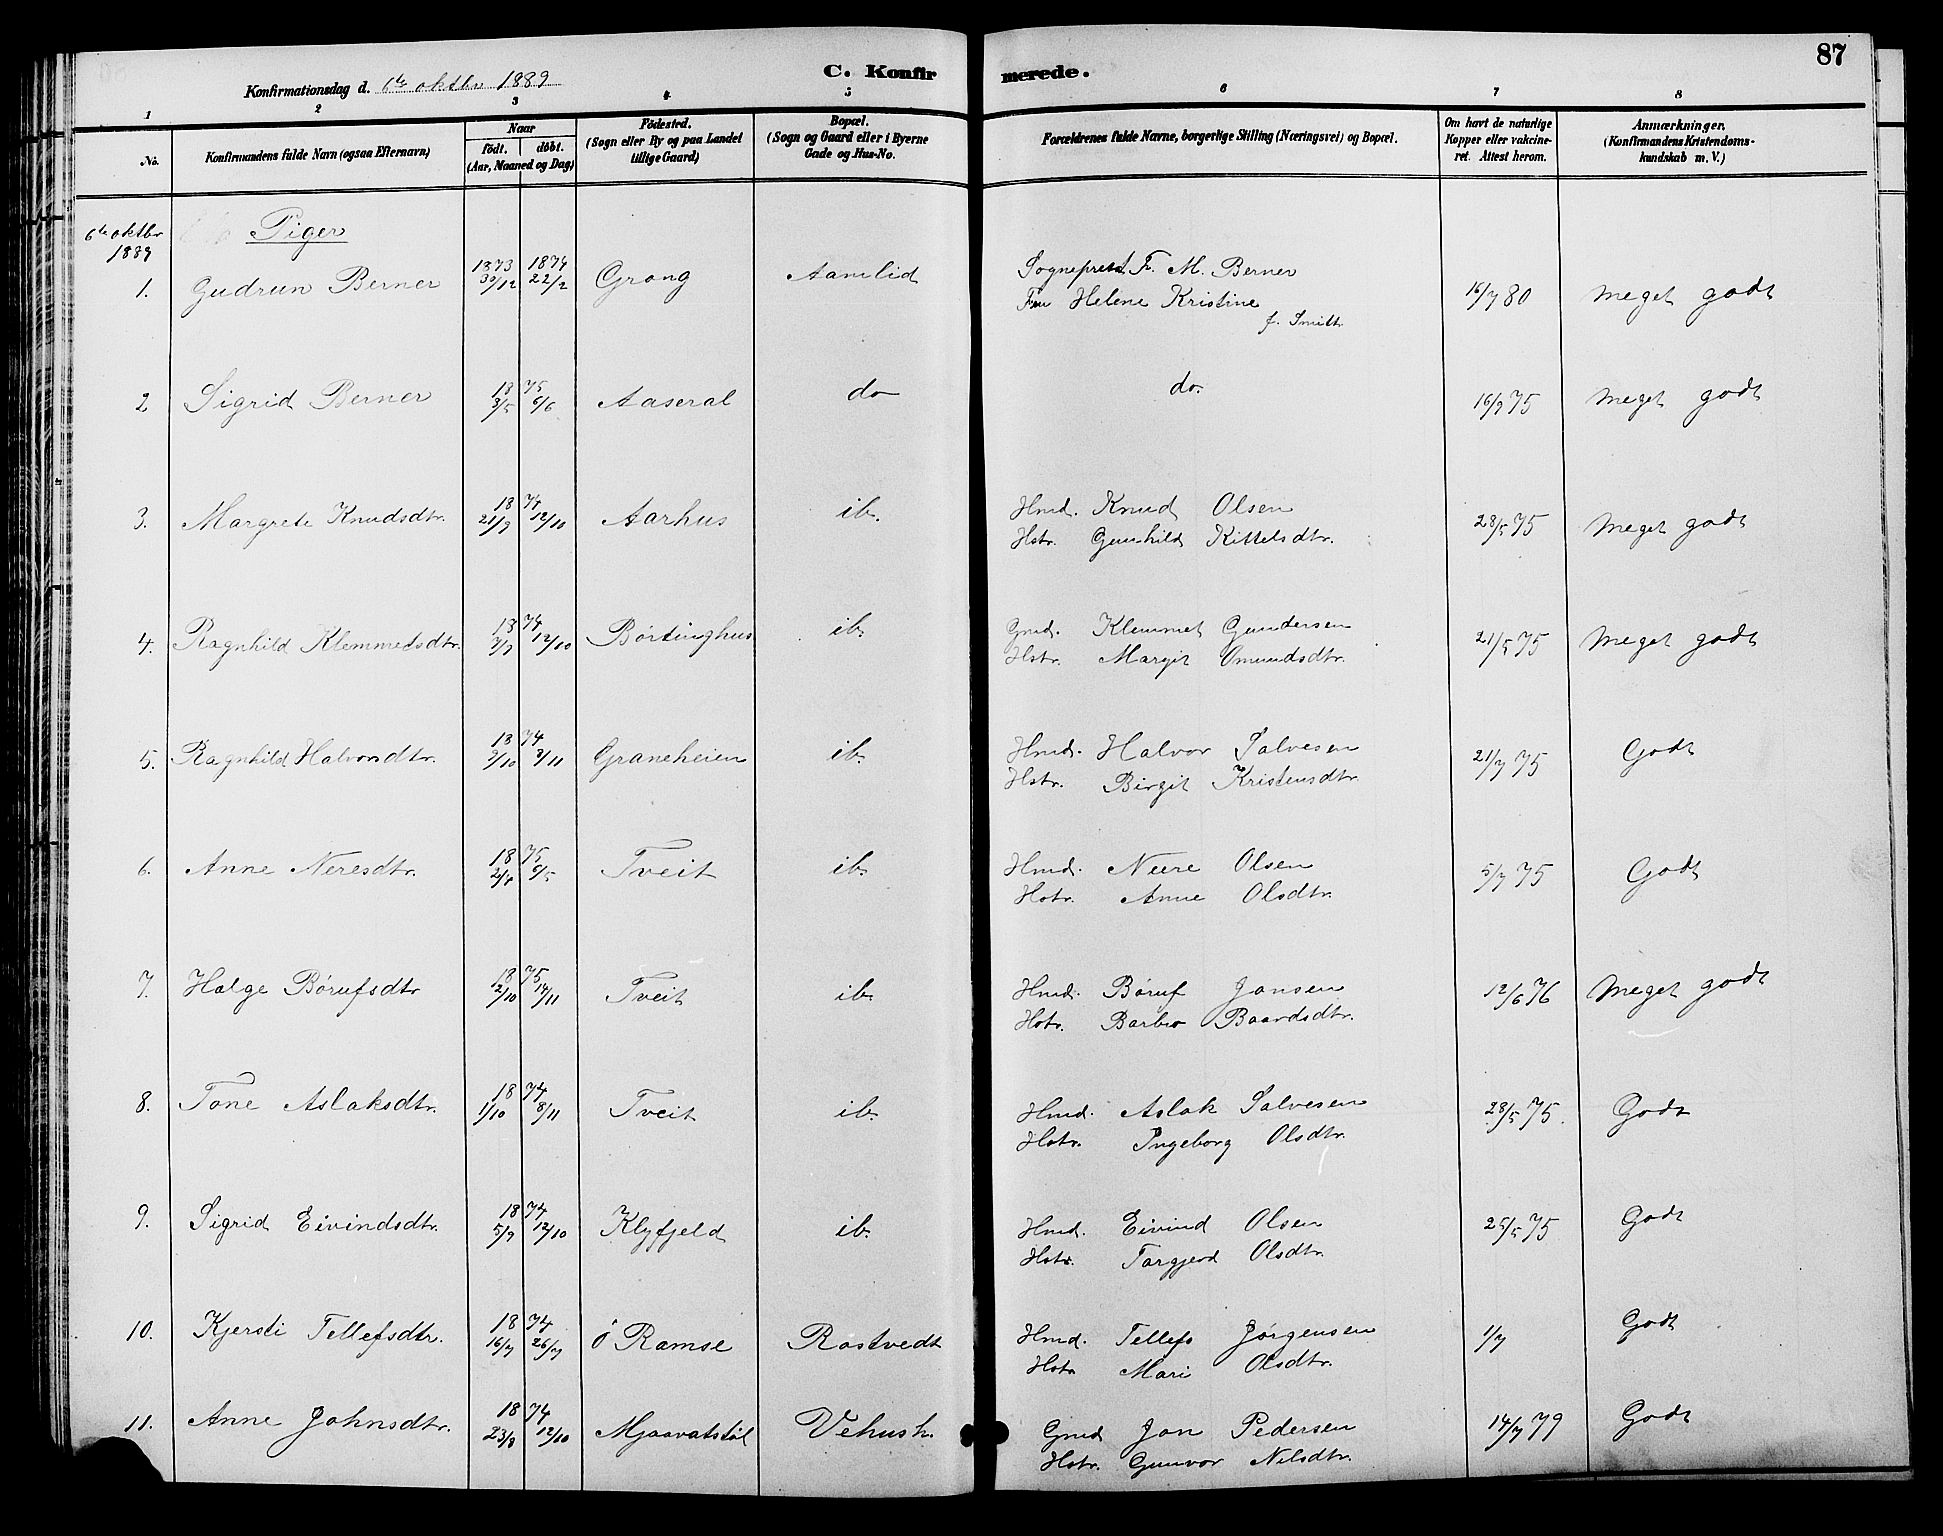 C. Konfirmerede.
87
Konfirmationsdag d. 6te oktbr 1889
1 2 3 4 5 6 7 8
No. Konfirmandens fulde Navn (ogsaa Efternavn) Naar født. døbt. (Aar, Maaned og Dag) Fødested. (Sogn eller By og paa Landet tillige Gaard) Bopæl. (Sogn og Gaard eller i Byerne Gade og Hus-No. Forældrenes fulde Navne, borgerlige Stilling (Næringsvei) og Bopæl. Om havt de naturlige Kopper eller vakcineret. Attest herom. Anmærkninger. (Konfirmandens Kristendomskundskab m. V.)
6te oktbr 1889 Piger
1. Gudrun Berner 1873 30/12 1874 22/2 Grong Aamlid Sogneprest F. M. Berner 16/7 80 Meget godt
Fru Helene Kristine
f. Smitt
2 Sigrid Berner 1875 3/5 6/6 Aaseral do do. 16/9 75 Meget godt
3. Margrete Knudsdtr. 1874 21/9 12/10 Aarhus ib. Hmd. Knud Olsen 28/5 75 Meget godt
Hstr. Gunhild Kittelsdtr.
4. Ragnhild Klemmetsdtr. 1874 7/9 12/10 Børtinghus ib. Gmd. Klemmet Gundersen 21/5 75 Meget godt
Hstr. Margit Omundsdtr.
5. Ragnhild Halvorsdtr. 1874 2/10 8/11 Graneheien ib. Hmd. Halvor Salvesen 21/7 75 Godt
Hstr. Birgit Kristensdtr
6. Anne Neresdtr. 1875 2/4 6/5 Tveit ib. Hmd. Neere Olsen 5/7 75 Godt
Hstr. Anne Olsdtr.
7. Hælge Børufsdtr 1875 2/10 14/11 Tveit ib. Hmd. Børuf Jansen 12/6 76 Meget godt
Hstr. Barbro Baardsdtr.
8. Tone Aslaksdtr. 1874 1/10 8/11 Tveit ib. Hmd. Aslak Salvesen 28/5 75. Godt
Hstr. Ingeborg Olsdtr.
9. Sigrid Eivindsdtr. 1874 5/9 12/10 Klyfjeld ib. Hmd. Eivind Olsen 25/5 75 Godt
Hstr. Targjerd Olsdtr.
10. Kjersti Tellefsdtr. 1874 16/7 26/7 Ø Ramse Rostvedt Hmd. Tellefs Jørgensen 1/7 Godt
Hstr Mari Olsdtr.
11. Anne Johnsdtr. 1874 23/8 12/10 Mjaavatstøl Vehush. Gmd Jon Pedersen 14/7 79 Godt
Hstr. Gunvor Nilsdtr.